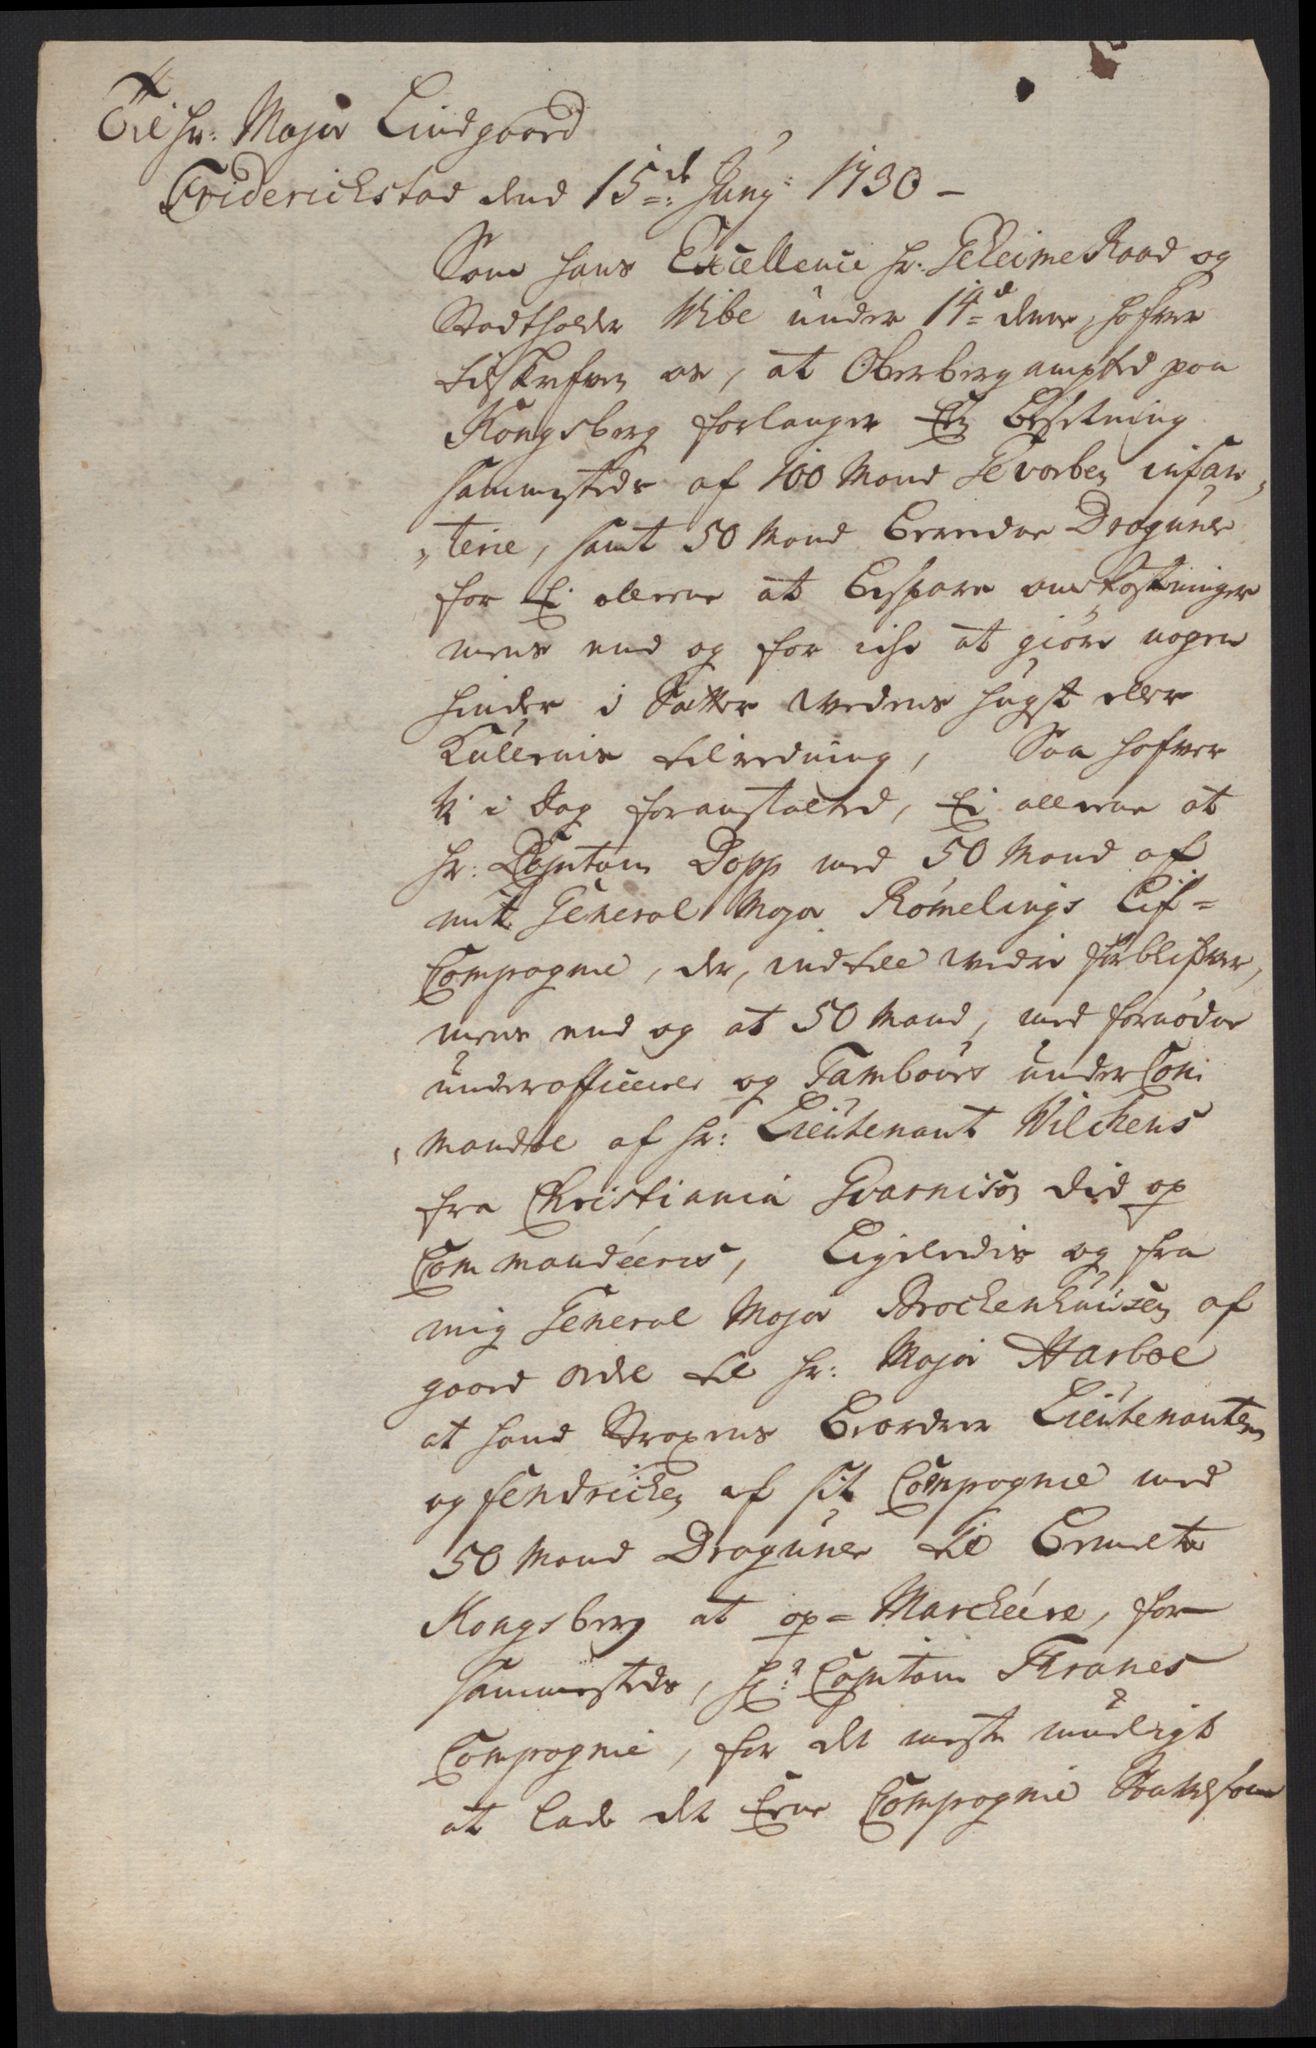 Til Hr: Major Lindgaard
Friderichstad dend 15de: Juny: 1730 –
Som hans Excellence Hr: Geheime Raad og
Stadtholder Wibe under 14de dennes, hafver
tilskrefven os, at Oberbergamptet paa
Kongsberg forlanger En besetning
sammesteds af 100 Mand Gevorben infan„
„terie, samt 50 Mand Beredne Dragúner
for Ei allene at bespare omkostninger
mens end og for iche at giøre nogen
hinder i Sætter wedens húgst eller
Kullenis tilredning, Saa hafver
Vi i Dag foranstalted, Ei allene at
Hr: Capitain Dopp med 50 Mand af
mit General Major Rømelings Lif=
Compagnie, der, indtil widre forblifver,
mens end og at 50 Mand, med fornødne
underofficerer og Tambours under Com
„mando af Hr: Lieutenant Wilchens
fra Christiania Gvarnison did op
Commandéeris, Ligeledis og fra
mig General Major Brockenhuusen af
gaard Ordre til Hr: Major Harboe
at hand Straxens Beordrer Lieutenanten
og fendrichen af sit Compagnie med
50 Mand Dragúner til Bemelte
Kongsberg at op=Marchéere, for
sammesteds, Hr: Capitain Kranes
Compagnie, for det meste mueligt
at lade det Eene Compagnie